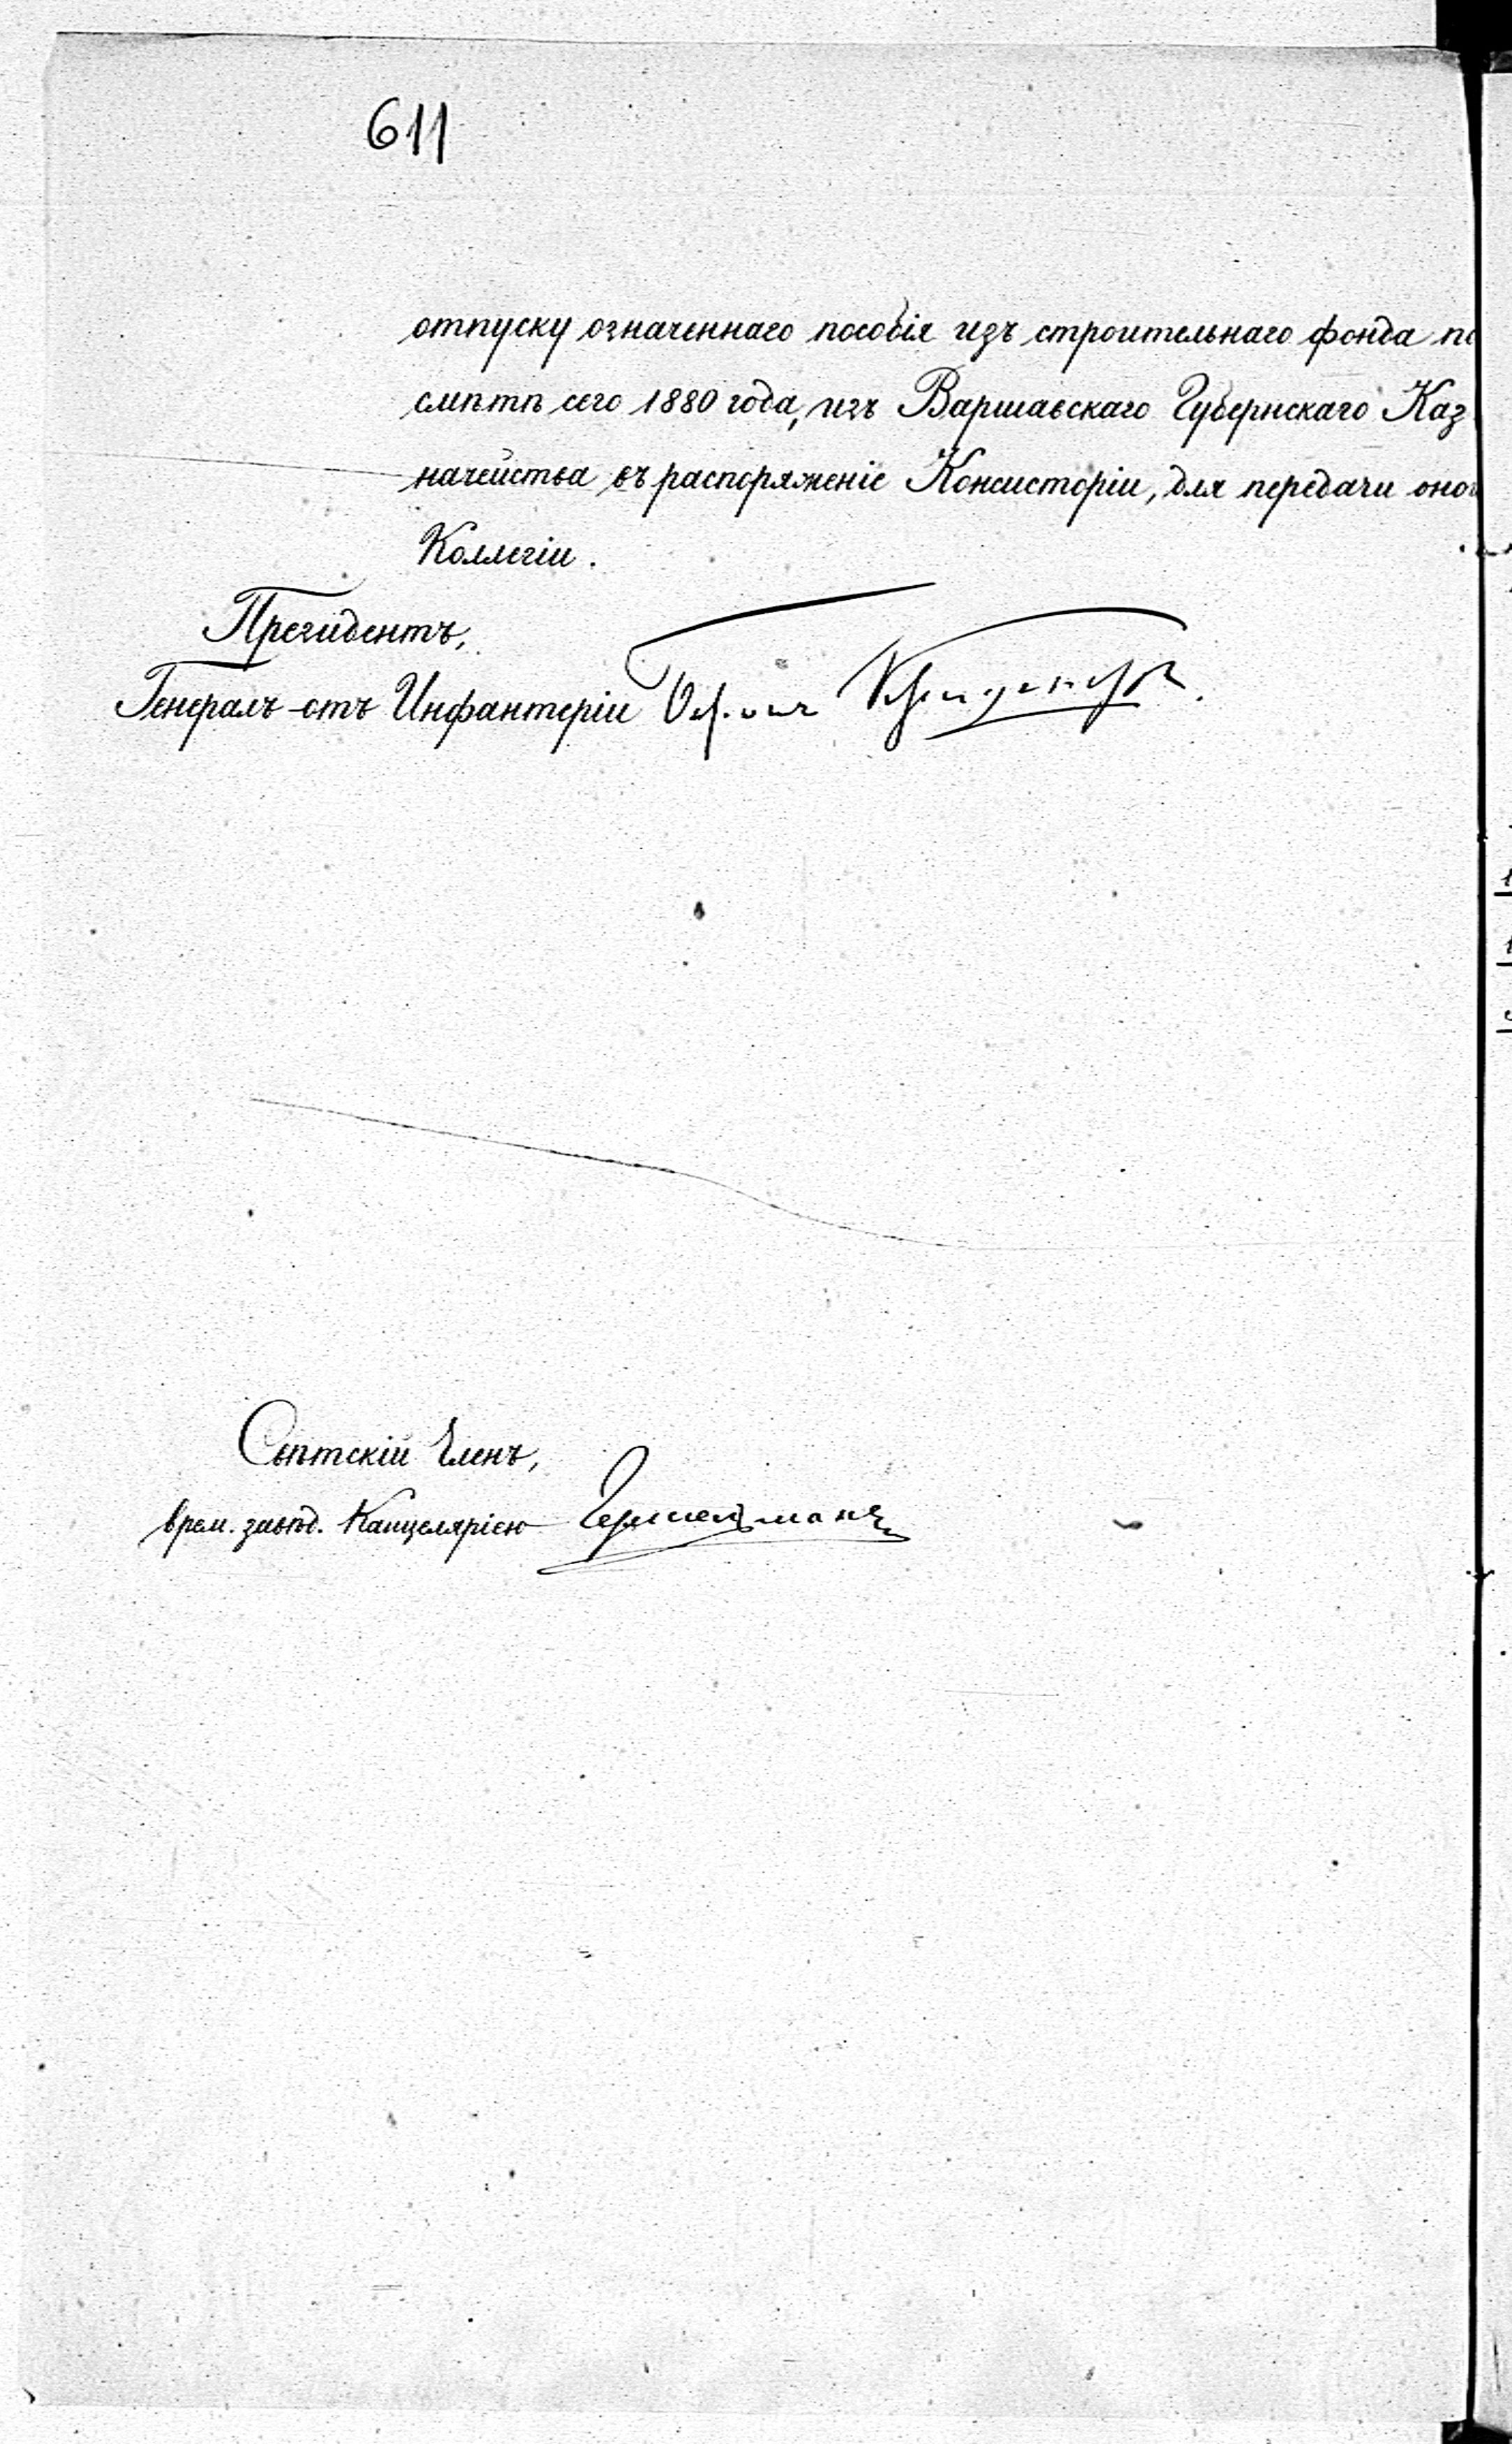 611
отпуску означеннаго пособія изъ строительнаго фонда по
смѣтѣ сего 1880 года, изъ Варшавскаго Губернскаго Каз
начейства въ распоряженіе Консисторіи, для передачи оной
Коллегіи.
Президентъ,
Генералъ-отъ Инфантеріи
Свѣтскій Членъ,
врем. завѣд. Канцеляріею